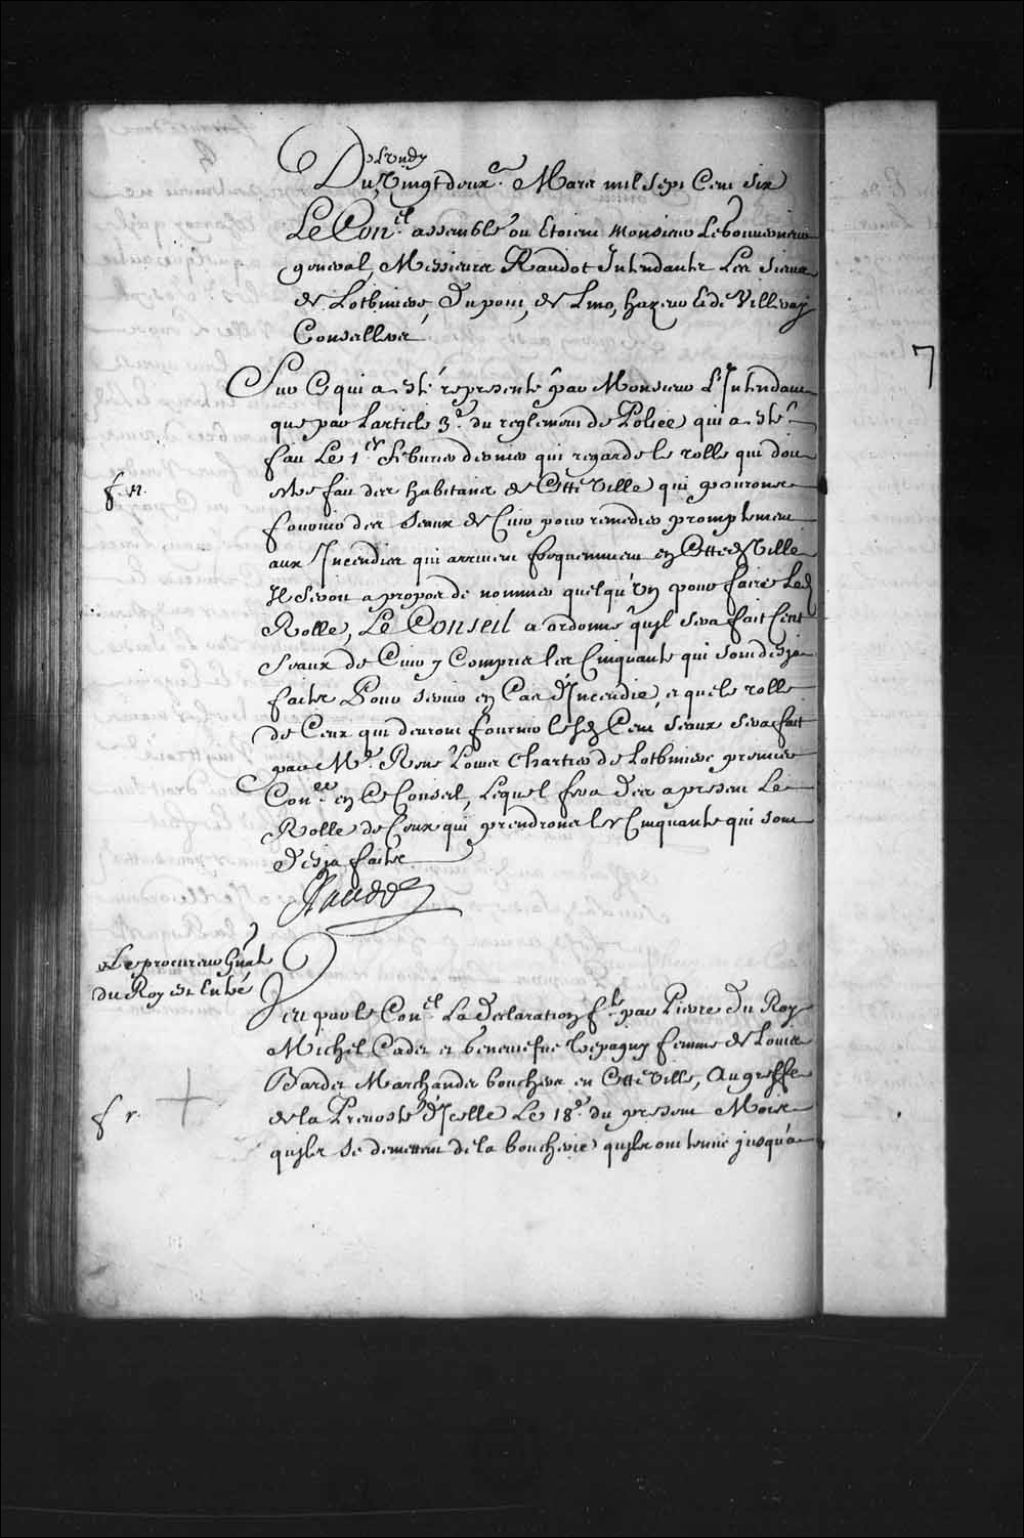 Lundy
Du Vingt deux.e Mars mil sept Cent six
Le Con.el assemblé ou Etoient Monsieur Le Gouverneur
general, Messieurs Raudot Intendants Les sieurs
de Lotbiniere, Dupont, de Lino, hazeur & de Villeray
Conseillers
Sur Ce qui a esté representé par Monsieur L'Intendant
que par L'article 3.e du reglement de Police qui a esté
fait Le 1.er febvrier dernier qui regarde le rolle qui doit
estre fait des habitans de Cette Ville qui pouront
fournir des seaux de Cuir pour remedier promptement
aux Incendies qui arrivent frequemment en Cette Ville
Il seroit a propos de nommer quelqu'un pour faire Led
Rolle, Le Conseil a ordonné qu'il sera fait Cent
seaux de Cuir y Compris les Cinquante qui sont desja
faits Pour servir en Cas d'Incendie, et que le rolle
de Ceux qui devront fournir lesd Cent seaux sera fait
par M.e René Louis Chartier de Lotbiniere premier
Con.er en Ce Conseil, Lequel fera des a present Le
Rolle de Ceux qui prendront les Cinquante qui sont
desja faits
Raudot
f. n.
Le procureur Gnal
du Roy est Entré
Veu par le Con.el La declaration f.te par Pierre Du Roy
Michel Cadet et Geneviefve Lepagny femme de Louis
Bardet Marchands bouchers en Cette Ville, Au greffe
de la Prevosté d'Icelle Le 18.e du present Mois
qu'ils se demettent de la boucherie qu'ils ont tenue jusqu'a
f r.
7